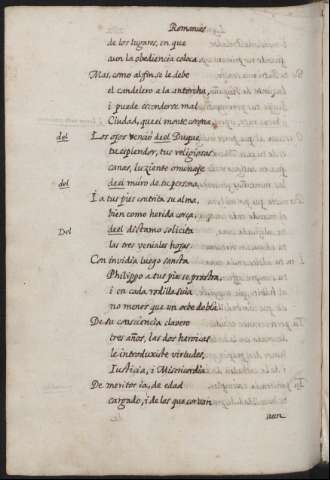 Romances
de los lugares, en que
aun la obediencia coloca.
Mas, como al fin se le debe
el candelero a la antorcha,
i puede esconderse mal
Ciudad, que el monte corona,
del Los ojos venciò de el Duque
tu esplendor, tus religiosas
canas, luziente omenaje
del de el muro de tu persona,
I a tus pies contrita su alma,
bien como herida corça,
Del de el dictamo solicita
las tres veniales hojas.
Con invidia luego sancta
Philippo a tus pies se prostra,
i en cada rodilla suia
no menor que un orbe dobla.
De su consciencia clavero
tres años, las dos heroicas
le introduxiste virtudes,
Iusticia, i Misericordia.
De meritos ia, de edad
cargado, i de las que corvan
aun